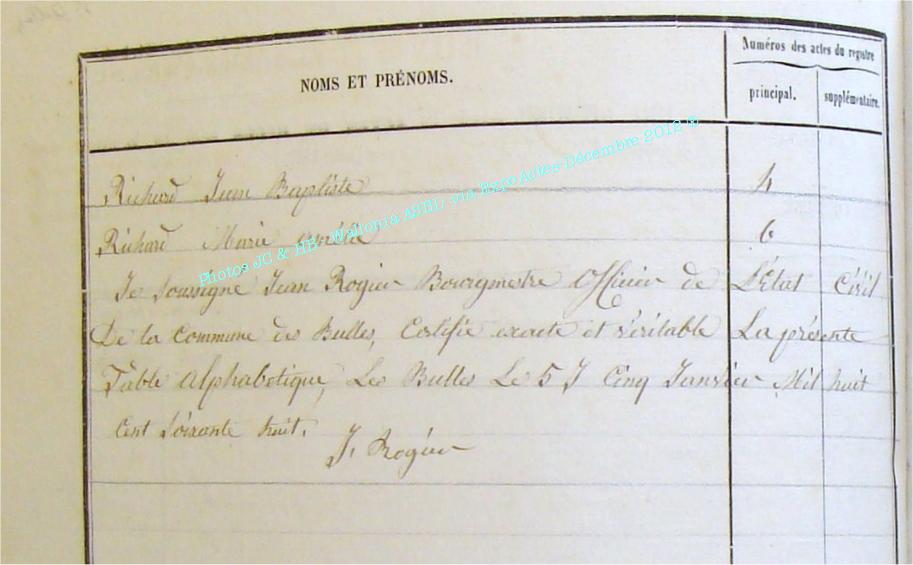 Numéros des actes du registre
NOMS ET PRÉNOMS.
principal. supplémentaire.
Richard Jean Baptiste 4
Richard Marie 6
Je Soussigné Jean Rogier Bourgmestre Officier de L'État Civil
De la Commune des Bulles, Certifie exacte et véritable La présente
Table Alphabetique, Les Bulles Le 5 J Cinq Janvier Mil huit
Cent Soixante huit.
J. Rogier
Photos JC & HB. Wallonia ASBL, via Expo Actes-Décembre 2012 ©